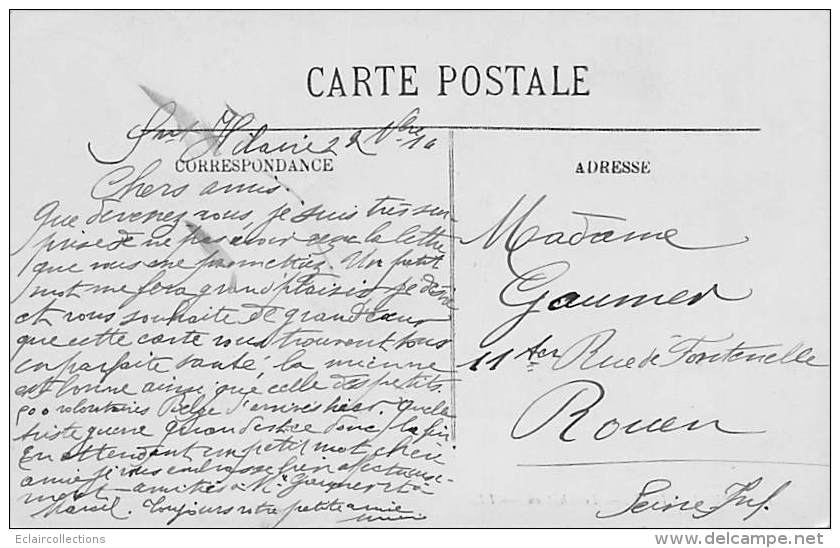 CARTE POSTALE
Hilaire 22 9bre 14
CORRESPONDANCE
ADRESSE
Chers amis.
Que devenez vous, je suis très sur-
prise de ne pas avoir reçu la lettre
que vous me promettiez Un petit
mot me fera grand plaisir je désire
et vous souhaite de grand cœur
que cette carte vous trouvent tous
en parfaite santé, la mienne
est bonne ainsi que celle des petits
500 volontaires Belge d'arrivés hier. Quelle
triste guerre quand est ce donc la fin
En attendant un petit mot, chère
amie je vous embrasse bien affectueuse-
ment - amitiés à Mr et à
Marcel. Toujours votre petite amie
Madame
Gaumer
11 ter Rue de Fontenelle
Rouen
Seine Inf.
Eclaircollections
delcampe.net